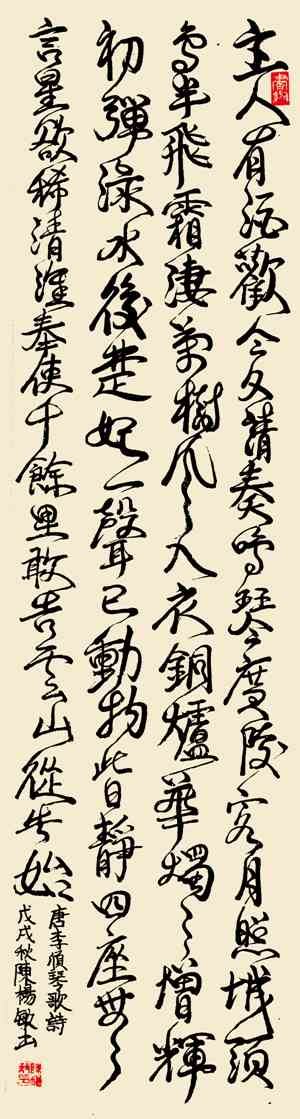 主人有酒歡今夕請奏鳴琴廣陵客月照城頭
烏半飛霜淒萬樹風入衣銅爐華燭々增輝
初彈淥水後楚妃一聲已動物皆靜四座無
言星欲稀清淮奉使千餘里敢告云山從此始
唐李頎琴歌詩
戊戌秋陳楊敏书